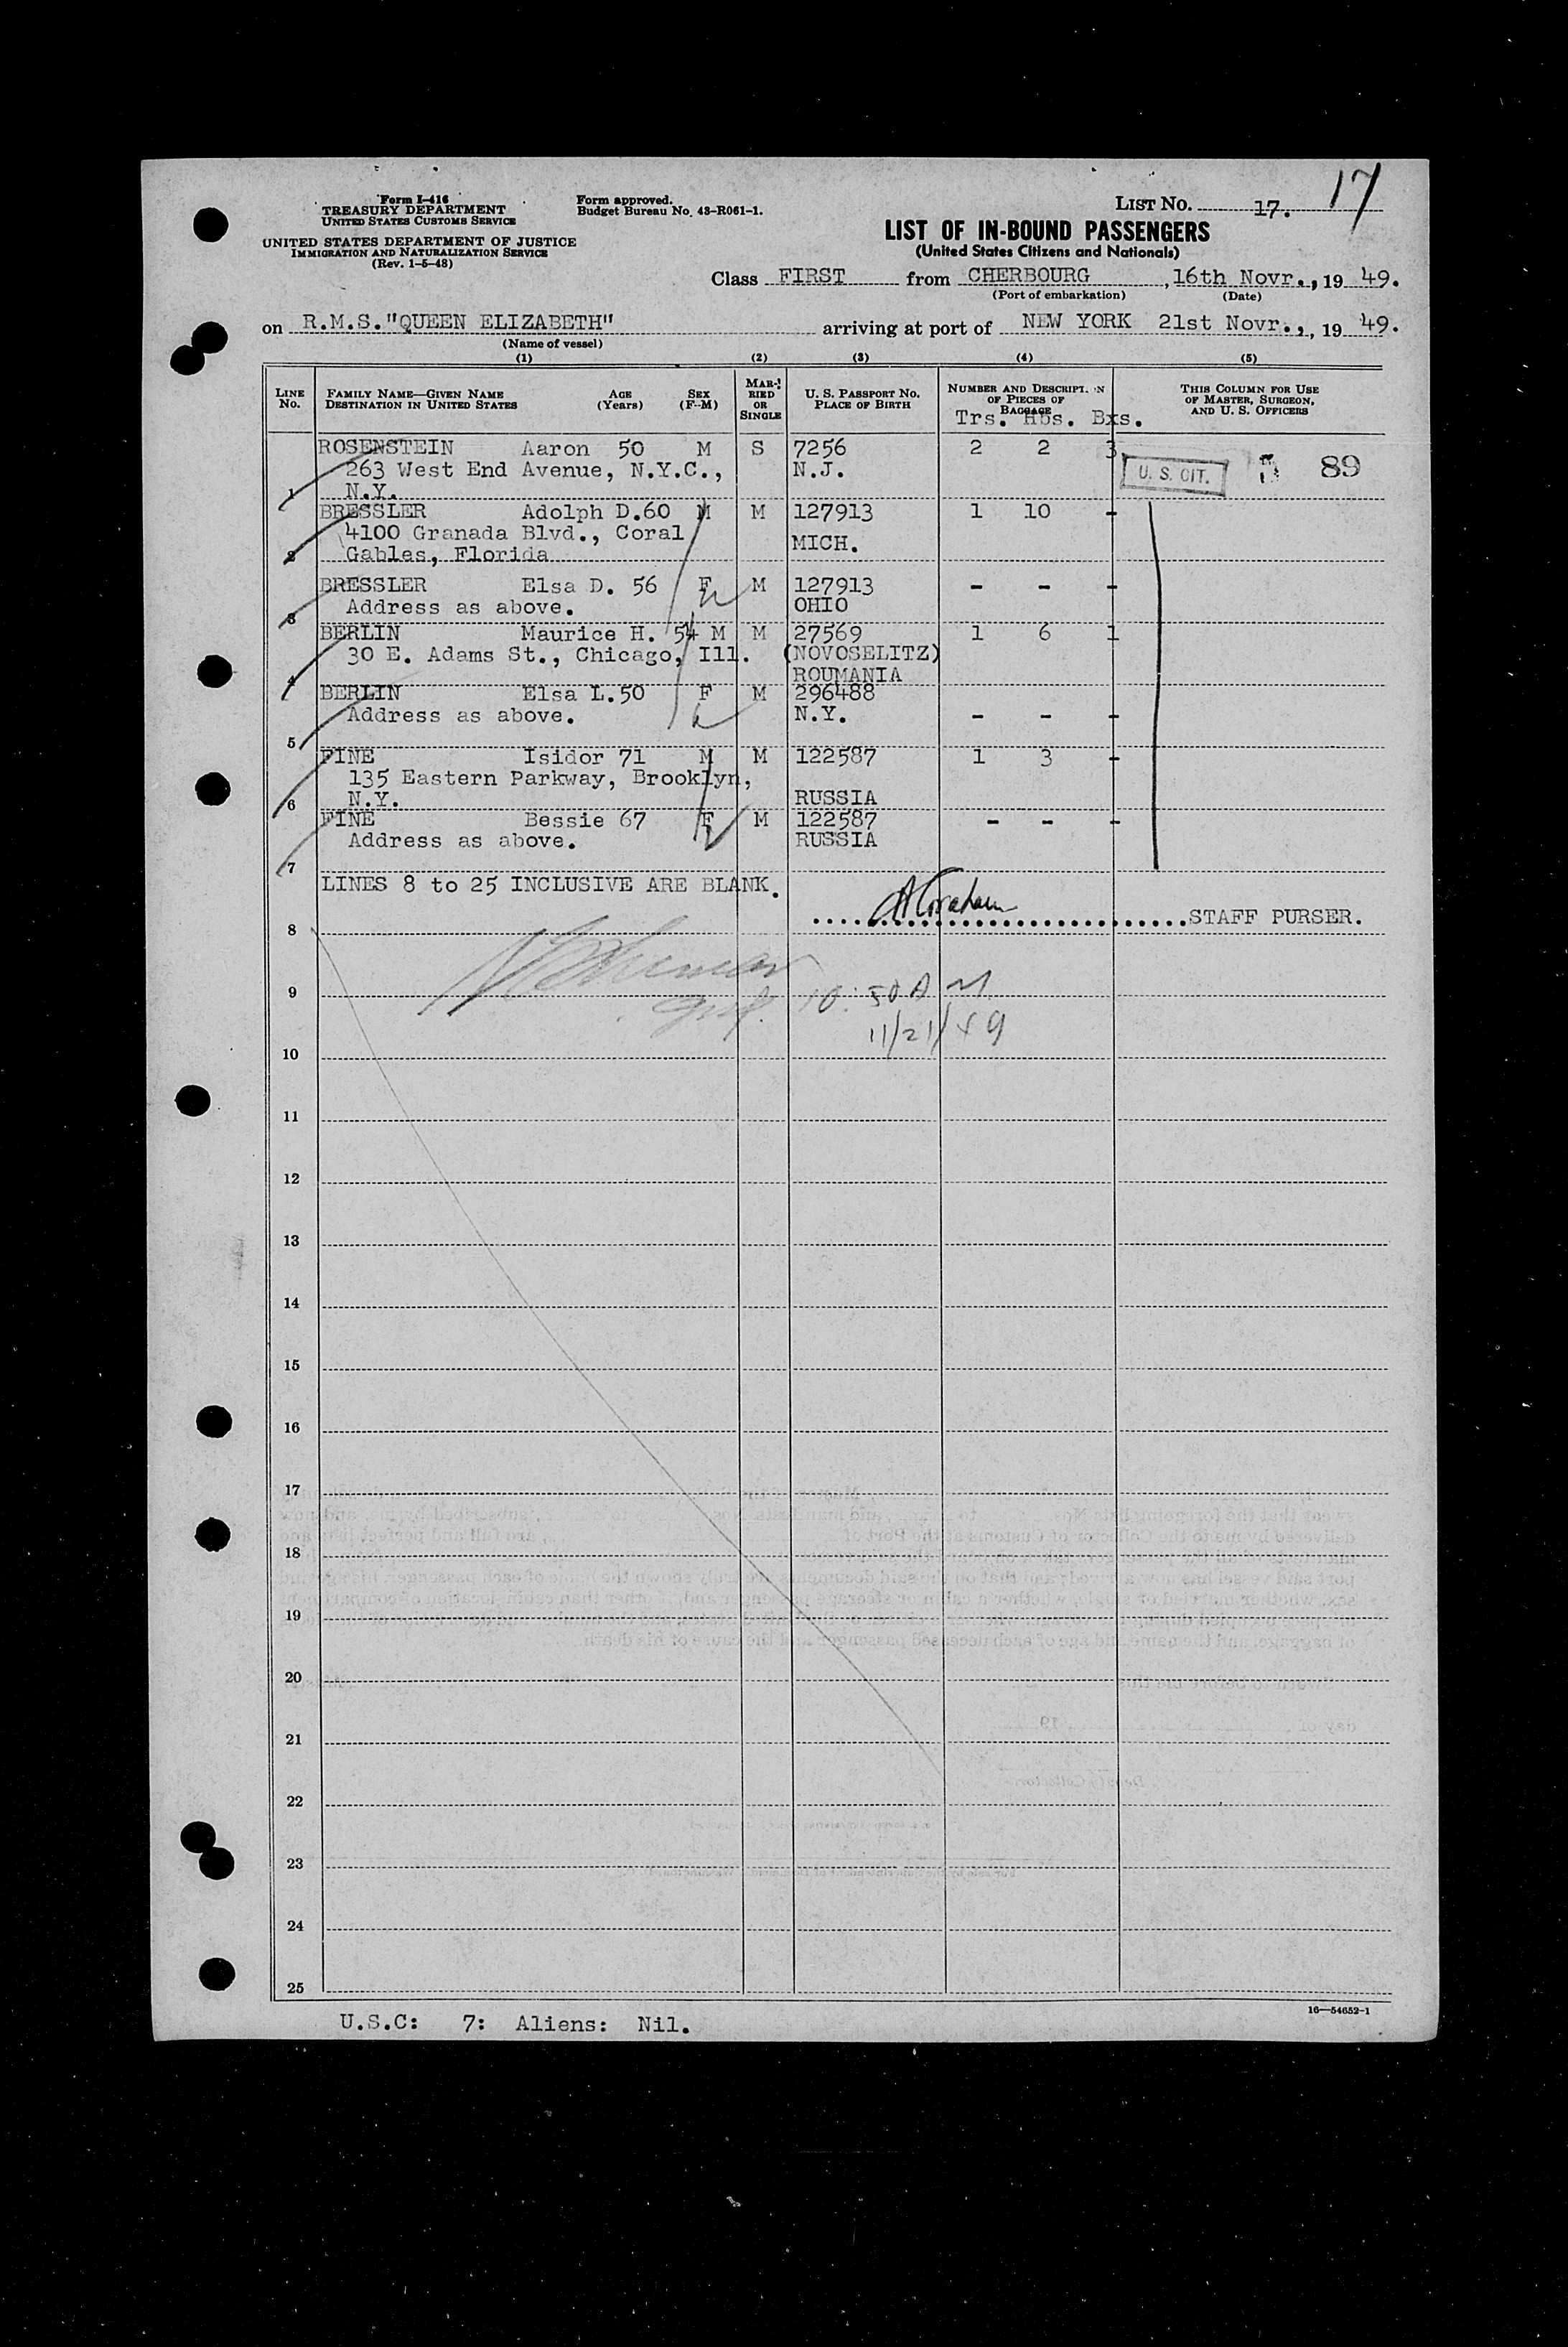 Form I-416
TREASURY DEPARTMENT
UNITED STATES CUSTOMS SERVICE
UNITED STATES DEPARTMENT OF JUSTICE
IMMIGRATION AND NATURALIZATION SERVICE
(Rev. 1-5-48)
Form approved.
Budget Bureau No. 43-R061-1.
LIST No. 17. 17
LIST OF IN-BOUND PASSENGERS
(United States Citizens and Nationals)
Class FIRST from CHERBOURG, 16th Novr., 19 49.
(Port of embarkation) (Date)
on R.M.S."QUEEN ELIZABETH" arriving at port of NEW YORK 21st Novr., 19 49.
(Name of vessel)
(1) (2) (3) (4) (5)
LINE No.
FAMILY NAME—GIVEN NAME AGE (Years) SEX (F-M)
DESTINATION IN UNITED STATES
MARRIED OR SINGLE
U. S. PASSPORT No.
PLACE OF BIRTH
NUMBER AND DESCRIPTION OF PIECES OF BAGGAGE
Trs. Hbs. Bxs.
THIS COLUMN FOR USE OF MASTER, SURGEON, AND U. S. OFFICERS
ROSENSTEIN Aaron 50 M S 7256 2 2 3
263 West End Avenue, N.Y.C., N.J. U. S. CIT. 89
1 N.Y.
BRESSLER Adolph D.60 M M 127913 1 10 -
4100 Granada Blvd., Coral MICH.
2 Gables, Florida
BRESSLER Elsa D. 56 F M 127913 - - -
Address as above. OHIO
3
BERLIN Maurice H. 54 M M 27569 1 6 1
30 E. Adams St., Chicago, Ill. (NOVOSELITZ)
4 ROUMANIA
BERLIN Elsa L.50 F M 296488
Address as above. N.Y. - - -
5
FINE Isidor 71 M M 122587 1 3 -
135 Eastern Parkway, Brooklyn,
6 N.Y. RUSSIA
FINE Bessie 67 F M 122587 - - -
Address as above. RUSSIA
7
LINES 8 to 25 INCLUSIVE ARE BLANK.
STAFF PURSER.
8
9 10:50 A M
11/21/49
10
11
12
13
14
15
16
17
18
19
20
21
22
23
24
25
16—54652-1
U.S.C: 7: Aliens: Nil.